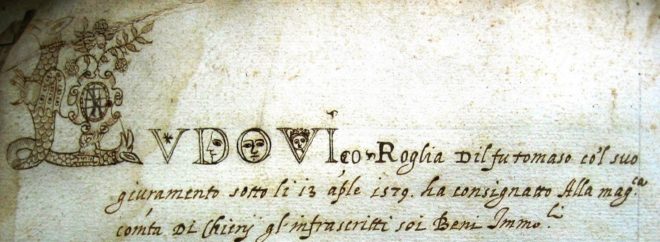 LVDOVIco Roglia Dil fu tomaso co'l suo
giuramento sotto li 13 aple 1579. ha consignatto Alla mag.ca
comta Di Chierj gl'infrascritti soi Beni Immo.li